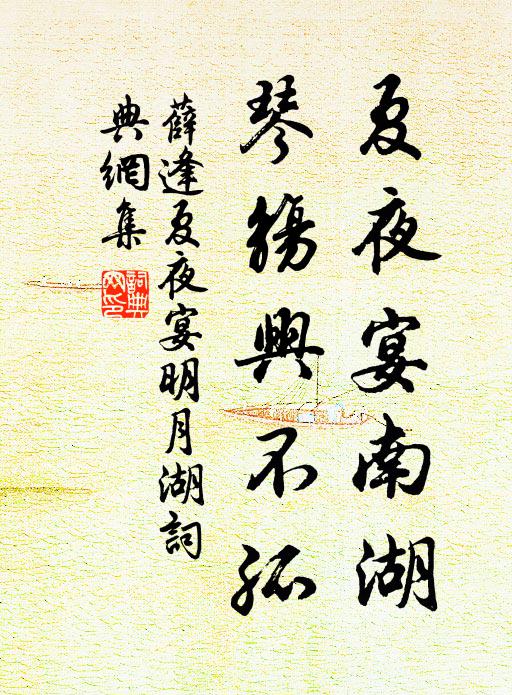 夏夜宴南湖
琴觴興不孤
薛逢夏夜宴明月湖詞
典網集
詞典網印